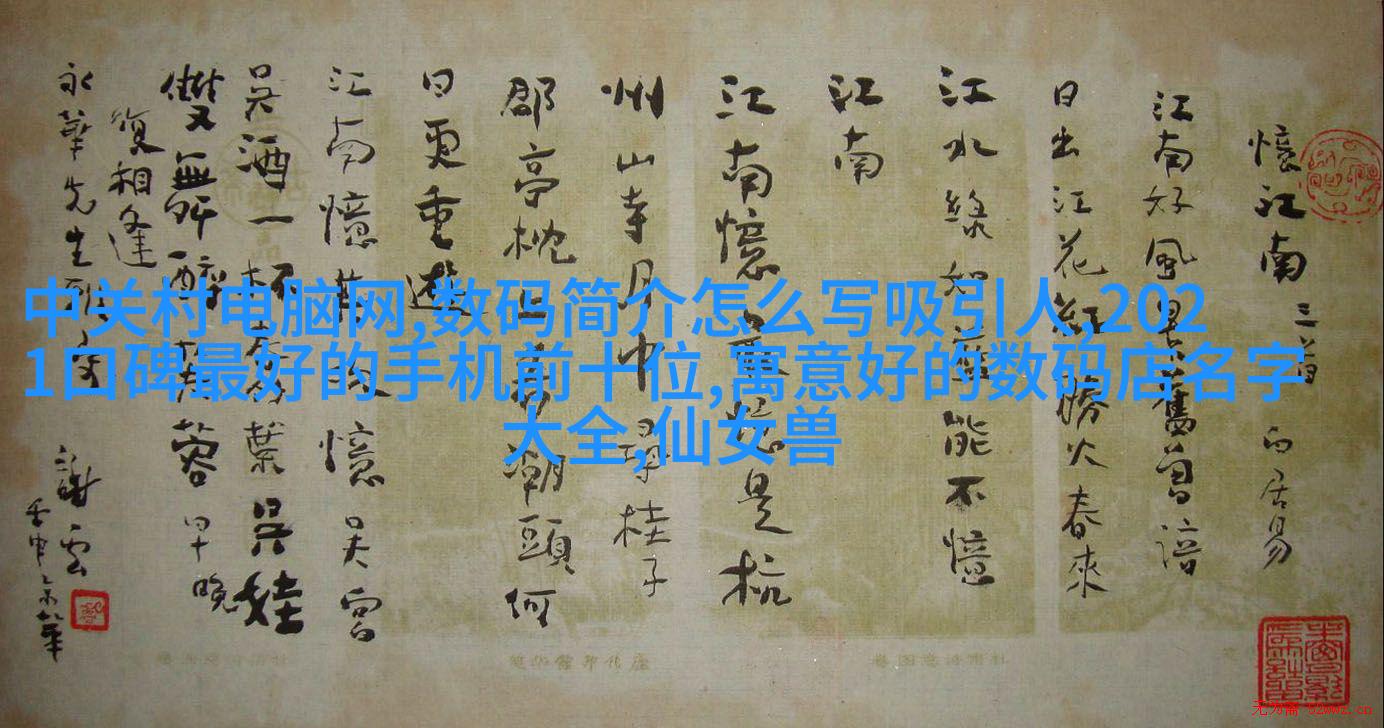 憶江南 三首 白居易
江南好風景舊曾諳
日出江花紅勝火春來
江水綠如藍能不憶
江南
江南憶最憶是杭
州山寺月中尋桂子
郡亭枕上看潮頭何
日更重遊
江南憶其次憶吳宮
吳酒一杯春竹葉吳娃
雙舞醉芙蓉早晚
復相逢
永華先生雅
謝雲
壬申
中关村电脑网,数码简介怎么写吸引人,202
1口碑最好的手机前十位,寓意好的数码店名字
大全,仙女兽
无为斋 52wwz.cn